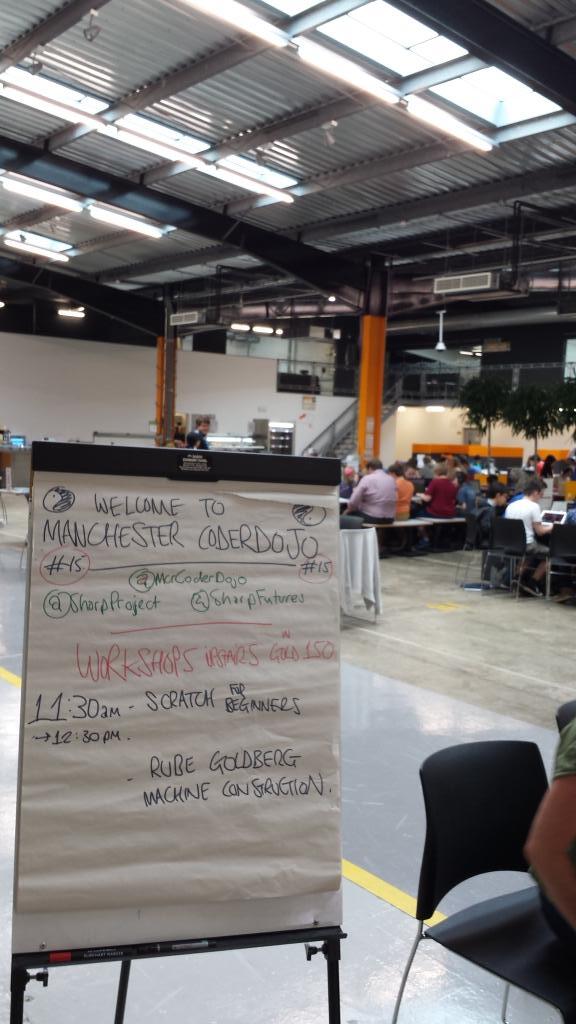 WELCOME TO
MANCHESTER CODERDOJO
#15 #15
@McrCoderDojo
@SharpProject @SharpFutures
WORKSHOPS UPSTAIRS IN GOLD 150
11:30am - SCRATCH FOR BEGINNERS
→12:30PM.
- RUBE GOLDBERG
MACHINE CONSTRUCTION.